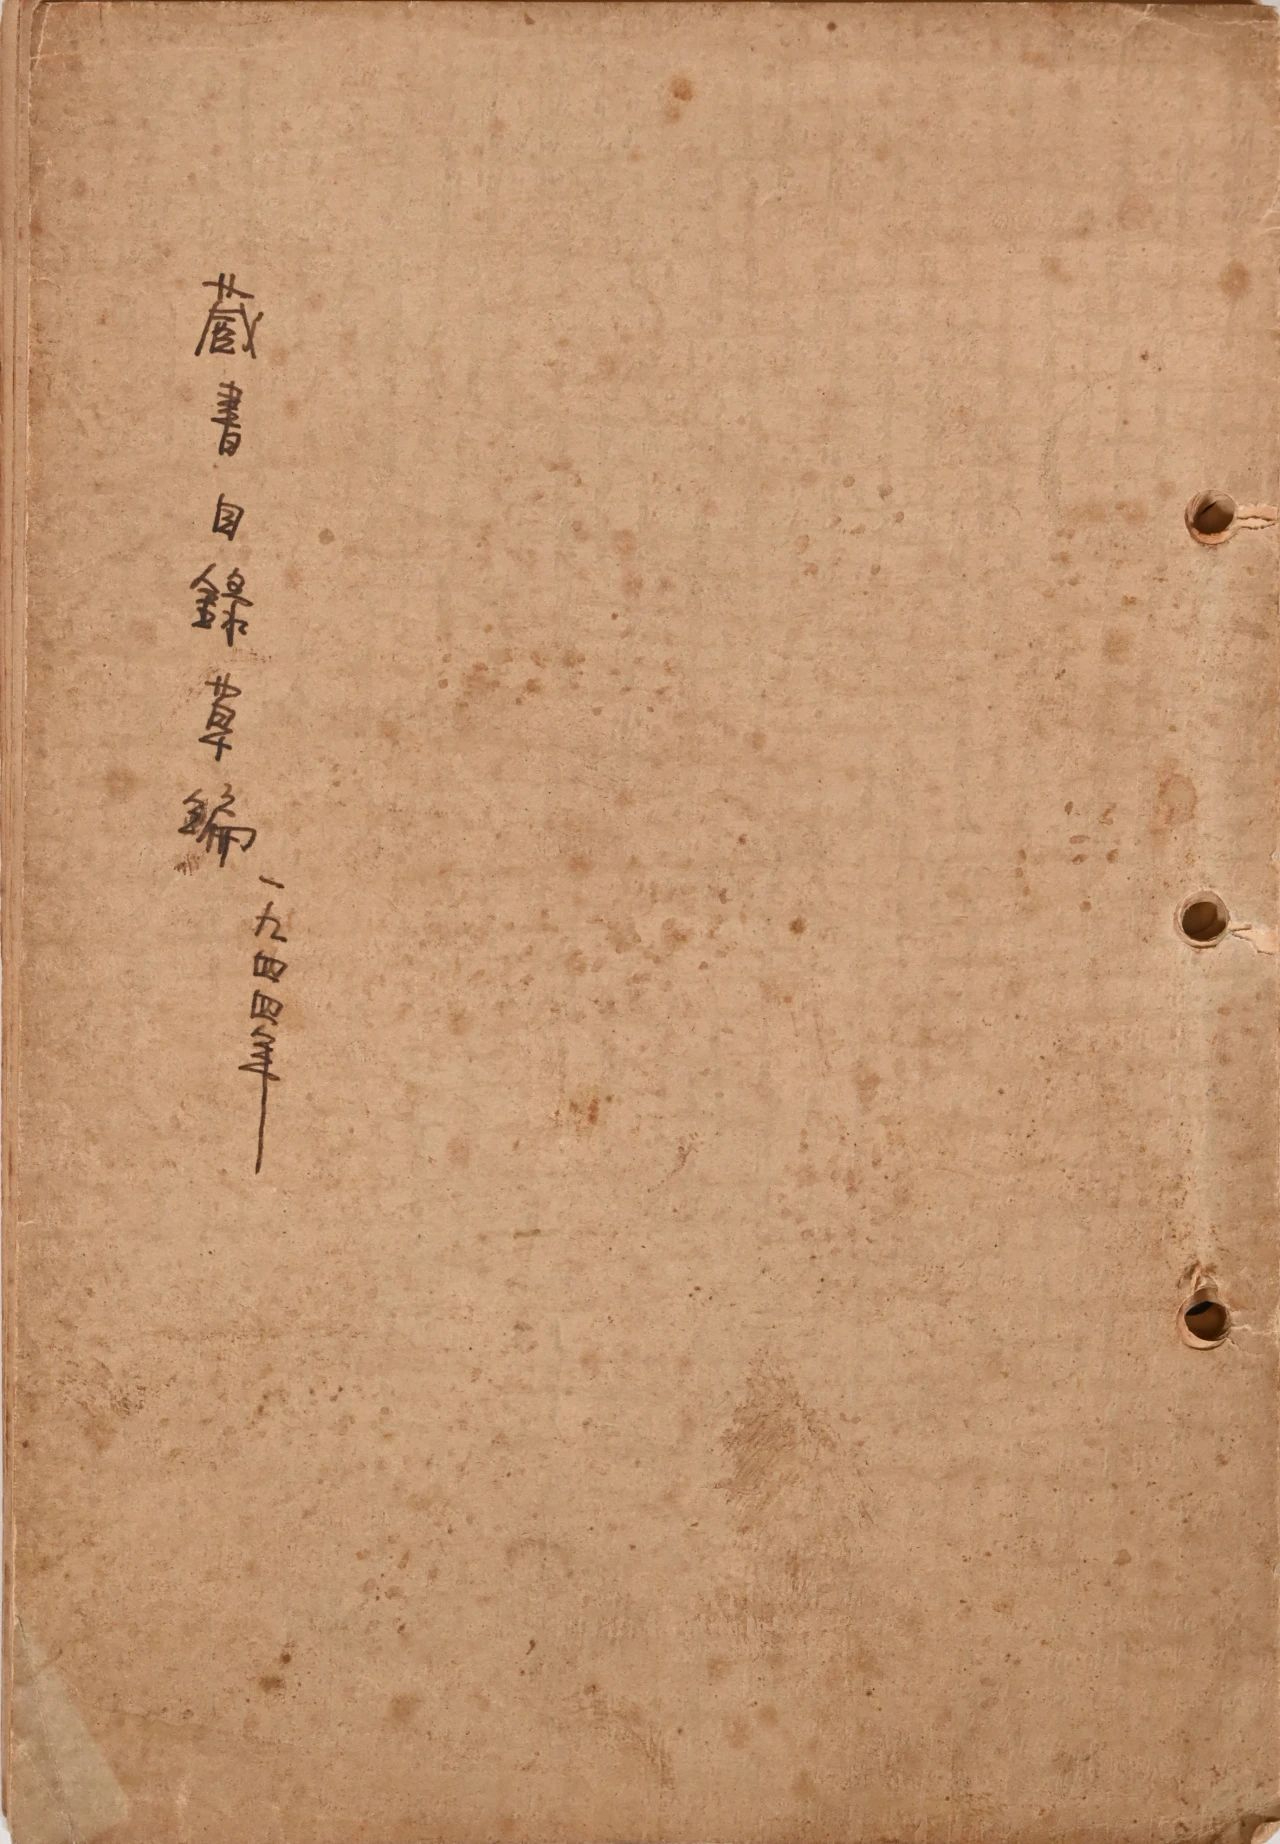 蔵書目錄草編
一九四四年